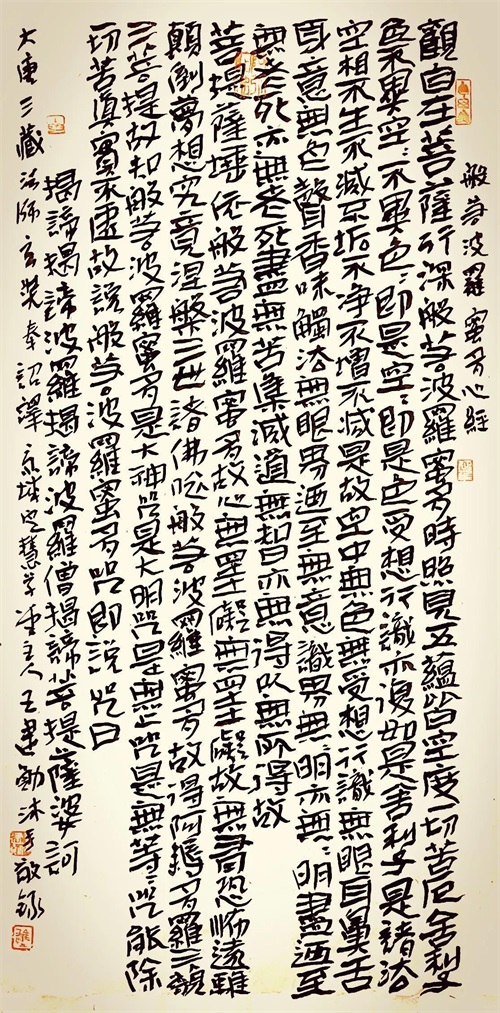 般若波羅蜜多心經
觀自在菩薩行深般若波羅蜜多時照見五蘊皆空度一切苦厄舍利子
色不異空〻不異色〻即是空〻即是色受想行識亦復如是舍利子是諸法
空相不生不滅不垢不淨不增不減是故空中無色無受想行識無眼耳鼻舌
身意無色聲香味觸法無眼界迺至無意識界無〻明亦無〻明盡迺至
無老死亦無老死盡無苦集滅道無智亦無得以無所得故
菩提薩埵依般若波羅蜜多故心無罣礙無罣礙故無有恐怖遠離
顛倒夢想究竟涅槃三世諸佛依般若波羅蜜多故得阿耨多羅三藐
三菩提故知般若波羅蜜多是大神咒是大明咒是無上咒是無等〻咒能除
一切苦真實不虛故說般若波羅蜜多咒即說咒曰
揭諦揭諦波羅揭諦波羅僧揭諦菩提薩婆訶
大唐三藏法師玄奘奉詔譯 京城定慧学堂主人王建勳沐手敬録